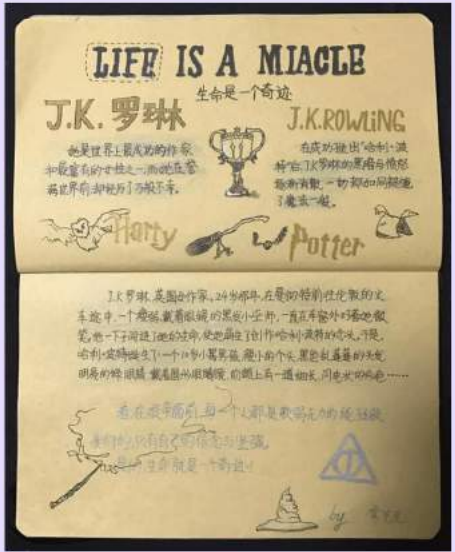 LIFE IS A MIACLE
生命是一个奇迹
J.K. 罗琳
J.K.ROWLiNG
她是世界上最成功的作家
和最富有的女性之一,而她在誉
满世界前却经历了万般不幸。
在成功推出"哈利·波
特"后,J.K罗琳的黑暗与愤怒
逐渐消散,一切都如同被施
了魔法一般。
Harry
Potter
J.K罗琳,英国女作家,24岁那年,在曼彻特前往伦敦的火
车途中,一个瘦弱、戴着眼镜的黑发小巫师,一直在车窗外对着她微
笑,他一下子闯进了她的生命,使她萌生了创作哈利·波特的念头。于是,
哈利·波特诞生了:一个10岁小男孩,瘦小的个头,黑色乱蓬蓬的头发
明亮的绿眼睛,戴着圆形眼镜,前额上有一道细长、闪电状的伤疤……
每一个人都是
生命就是一个奇迹!
by